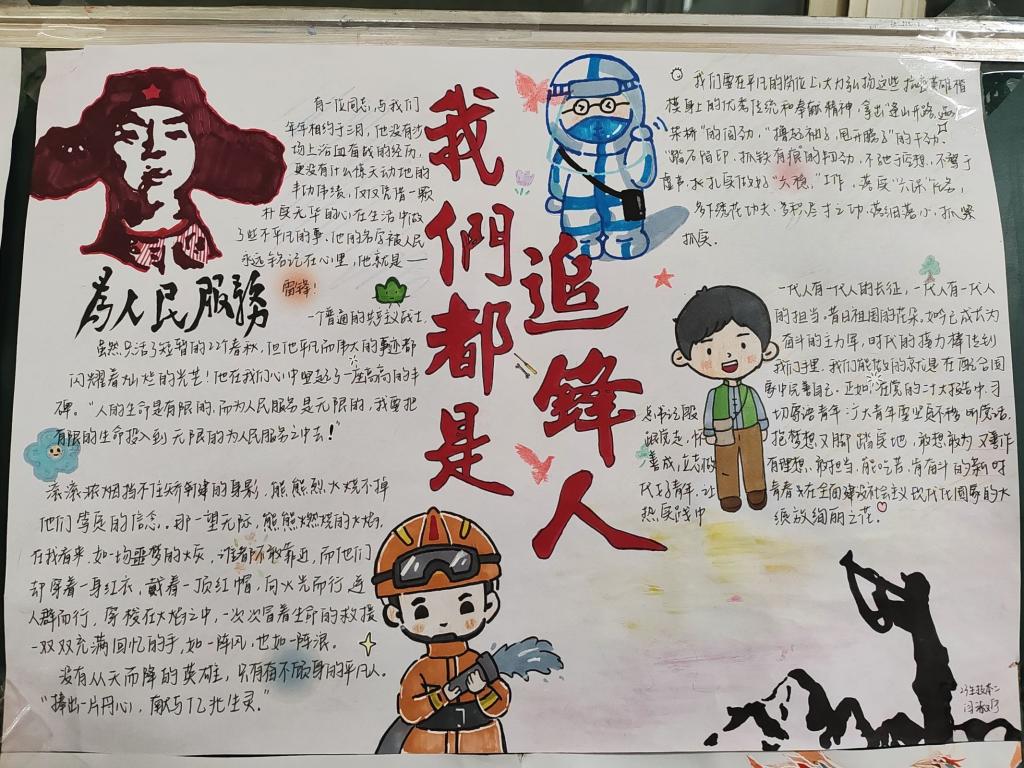 我們都是
追鋒人
有一位同志,与我们
年年相约于三月,他没有沙
场上浴血奋战的经历,
更没有什么惊天动地的
丰功伟绩,仅仅凭借一颗
朴实无华的心在生活中做
了些不平凡的事,他的名字被人民
永远铭记在心里,他就是一
雷锋!
一个普通的共产主义战士.
為人民服務
虽然只活了短暂的22个春秋,但他平凡而伟大的事迹都
闪耀着灿烂的光芒!他在我们心中里起了一座高高的丰
碑。“人的生命是有限的,而为人民服务是无限的,我要把
有限的生命投入到无限的为人民服务之中去!”
滚滚浓烟挡不住矫健的身影,熊熊烈火烧不掉
他们坚定的信念。那一望无际,熊熊燃烧的火焰,
在我看来,如一场噩梦的大灰,谁都不敢靠近,而他们
却穿着一身红衣,戴着一顶红帽,向火光而行,逆
人群而行,穿梭在火焰之中,一次次冒着生命的救援
一双双充满回忆的手,如一阵风,也如一阵浪。
没有从天而降的英雄,只有奋不顾身的平凡人。
“捧出一片丹心,献与亿兆生灵”
我们要在平凡的岗位上大力弘扬这些抗疫英雄楷
模身上的优秀传统和奉献精神,拿出“逢山开路、遇
架桥”的闯劲,“撸起袖子,甩开膀子”的干劲.
“踏石留印、抓铁有痕”的韧劲,不驰于空想、不骛于
虚声,扎扎实做好“六稳”工作,落实“六保”
多下绣花功夫,多积尺寸之功,落细落小,抓紧
抓实.
一代人有一代人的长征,一代人有一代人
的担当,昔日祖国的花朵,如今已成长为
奋斗的主力军,时代的接力棒传到
我们手里,我们能做的就是在
中完善自己.正如在党的二十大报告中,习
总书记
切寄语青年:广大青年要坚定不移听党话,
跟党走,怀
抱梦想又脚踏实地,敢想敢为又善作
善成,立志做
有理想、敢担当、能吃苦、肯奋斗的新时
代好青年,让
青春在全面建设社会主义现代化国家的火
热实践中
绽放绚丽之花.